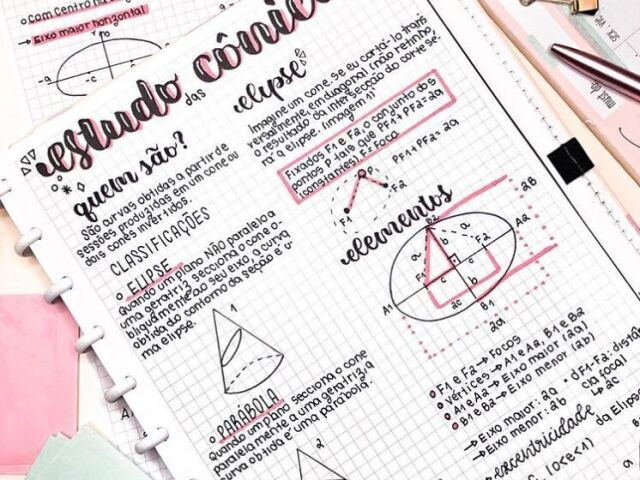 com centro na
→ Eixo maior horizontal
b
-a
-c
c
a
estudo
das
cônic
quem são?
São curvas obtidas a partir de
sessões produzidas em um cone ou
dois cones invertidos.
CLASSIFICAÇÕES
ELIPSE
Quando um plano NÃO paralelo a
uma geratriz secciona o cone o-
bliquamente ao seu eixo, a curva
obtida do contorno da seção é u-
ma elipse.
1
PARÁBOLA
Quando um plano secciona o cone
paralelamente a uma geratriz, a
curva obtida é uma parábola.
2
elipse
Imagine um cone. se eu cortá-lo trans
versalmente, em diagonal (não retinho,
o resultado da intersecção do corte se-
rá a elipse. (imagem 1)
Fixados F1 e F2, o conjunto dos
pontos P tais que PF1 + PF2 = 2a
(constantes). F = Foco.
P
F1
F2
PF1 + PF2 = 2a
elementos
B2
2B
A2
a
b
a
F2
F1
c
c
b
A1
2c
B1
2a
F1 e F2 → Focos
Vértices → A1 e A2, B1 e B2
A1 e A2 → Eixo maior (2a)
B1 e B2 → Eixo menor (2b)
→ Eixo maior: 2a
→ Eixo menor: 2b
• d F1-F2: distân
cia focal
↳ 2c
excentricidade
da Elips
(0<e<1)
ser. ve
must do